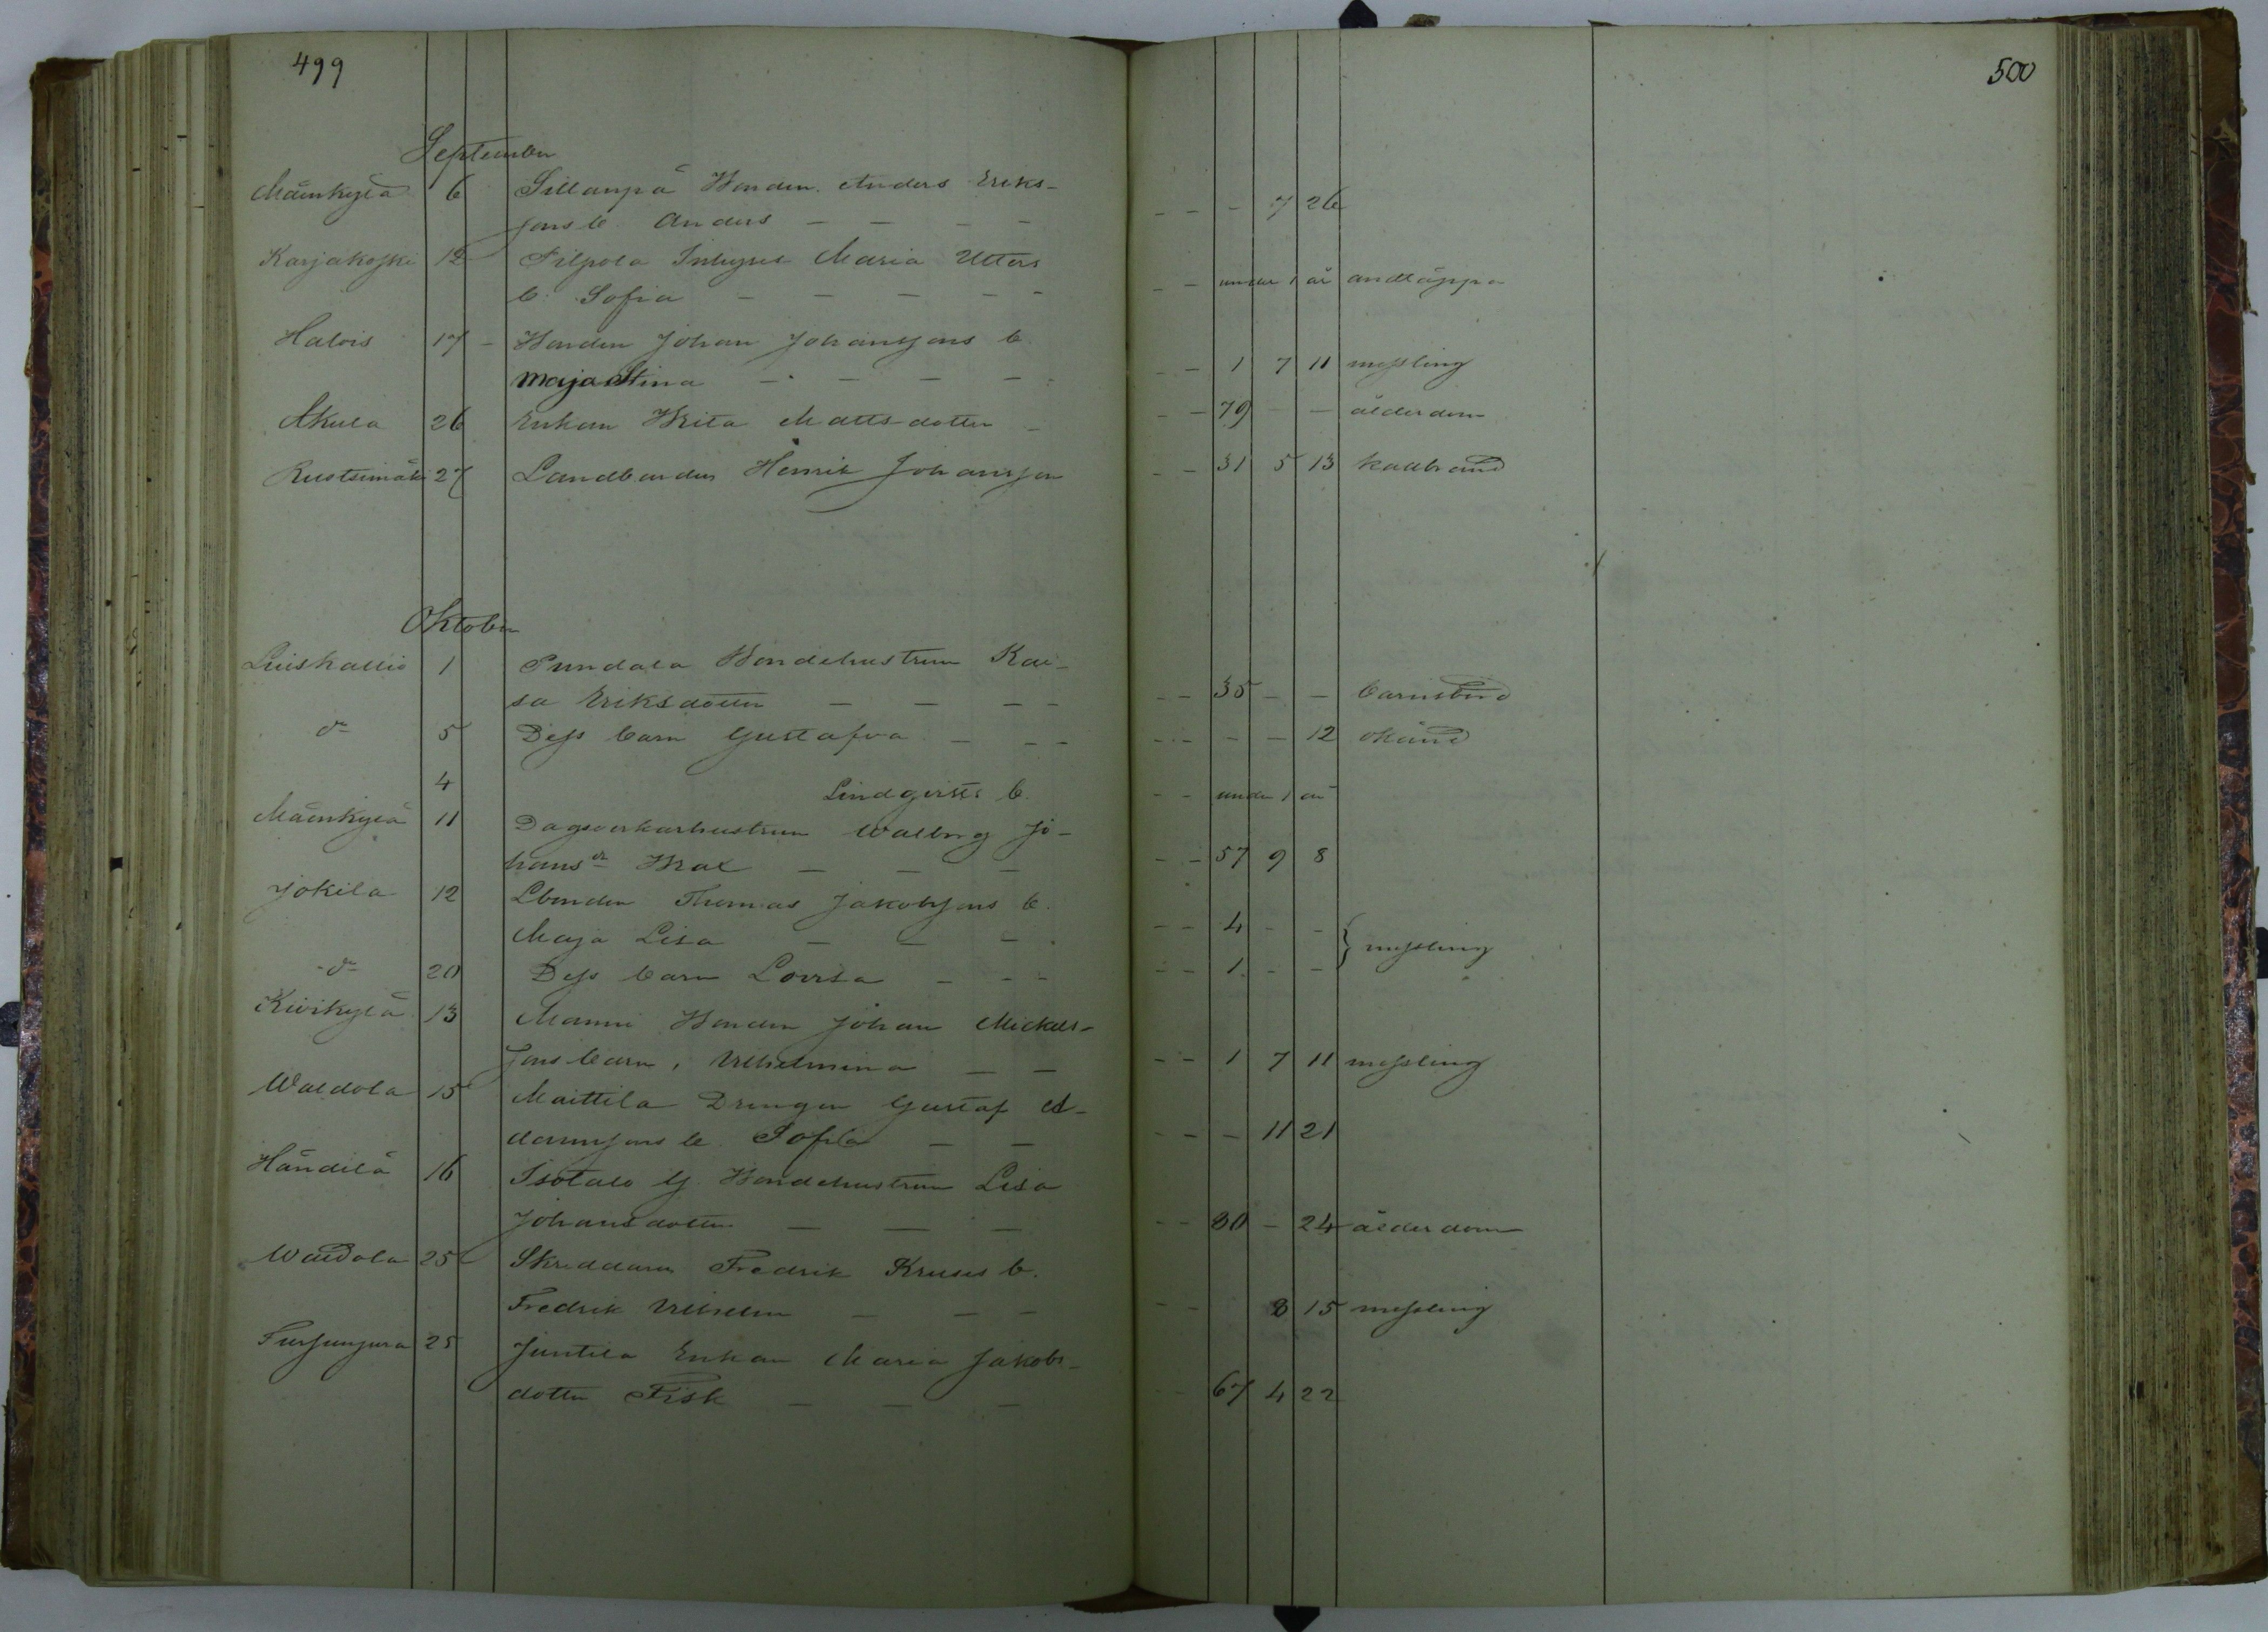 499
500
September
Mäenkylä 6 Sillanpä Bonden Anders Eriks-
sons b. Anders - - - - - - - 7 26
Karjakoski 12 Filpola Inhyses Maria Utters
b. Sofia - - - - - - - under 1 år andtäppa
Halois 17 - Bonden Johan Johanssons b.
Maja Stina - - - - - - 1 7 11 messling
Akula 26 Enkan Brita Mattsdotter - - - 79 - - ålderdom
Rustsimäki 27 Landbonden Henrik Johansson - - 31 5 13 kallbrand
Oktober
Luiskallio 1 Pundala Bondehustrun Kai-
sa Eriksdotter - - - - - - 35 - - barnsbörd
do 5 Dess barn Gustafva - - - - - - - 12 okänd
4 Lindqvists b. - - under 1 år
Mäenkylä 11 Dagsverkarhustrun Walborg Jo-
hansdr - - - - - 57 9 8
Jokila 12 Lbonden Thomas Jakobssons b.
Maja Lisa - - - - - - 4 - - } messling
do 20 Dess barn Lovisa - - - - - 1 - -
Kivikylä 13 Manni Bonden Johan Mickels-
sons barn, Vilhelmina - - - - 1 7 11 messling
Waldola 15 Maittila Drengen Gustaf A-
damssons b. Sofia - - - - - 11 21
Händilä 16 Isotalo G. Bondehustrun Lisa
Johansdotter - - - - - 80 - 24 ålderdom
Waldola 25 Skreddaren Fredrik Kruses b.
Fredrik Vilhelm - - - - - 8 15 messling
25 Juntila Enkan Maria Jakobs-
dotter Fisk - - - - 67 4 22